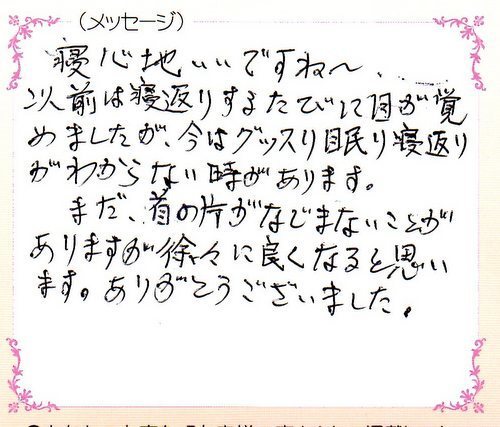 (メッセージ)
寝心地いいですね〜、
以前は寝返りするたびに目が覚
めましたが、今はグッスリ眠り寝返り
がわからない時があります。
まだ、首の片がなじまないことが
ありますが徐々に良くなると思い
ます。ありがとうございました。